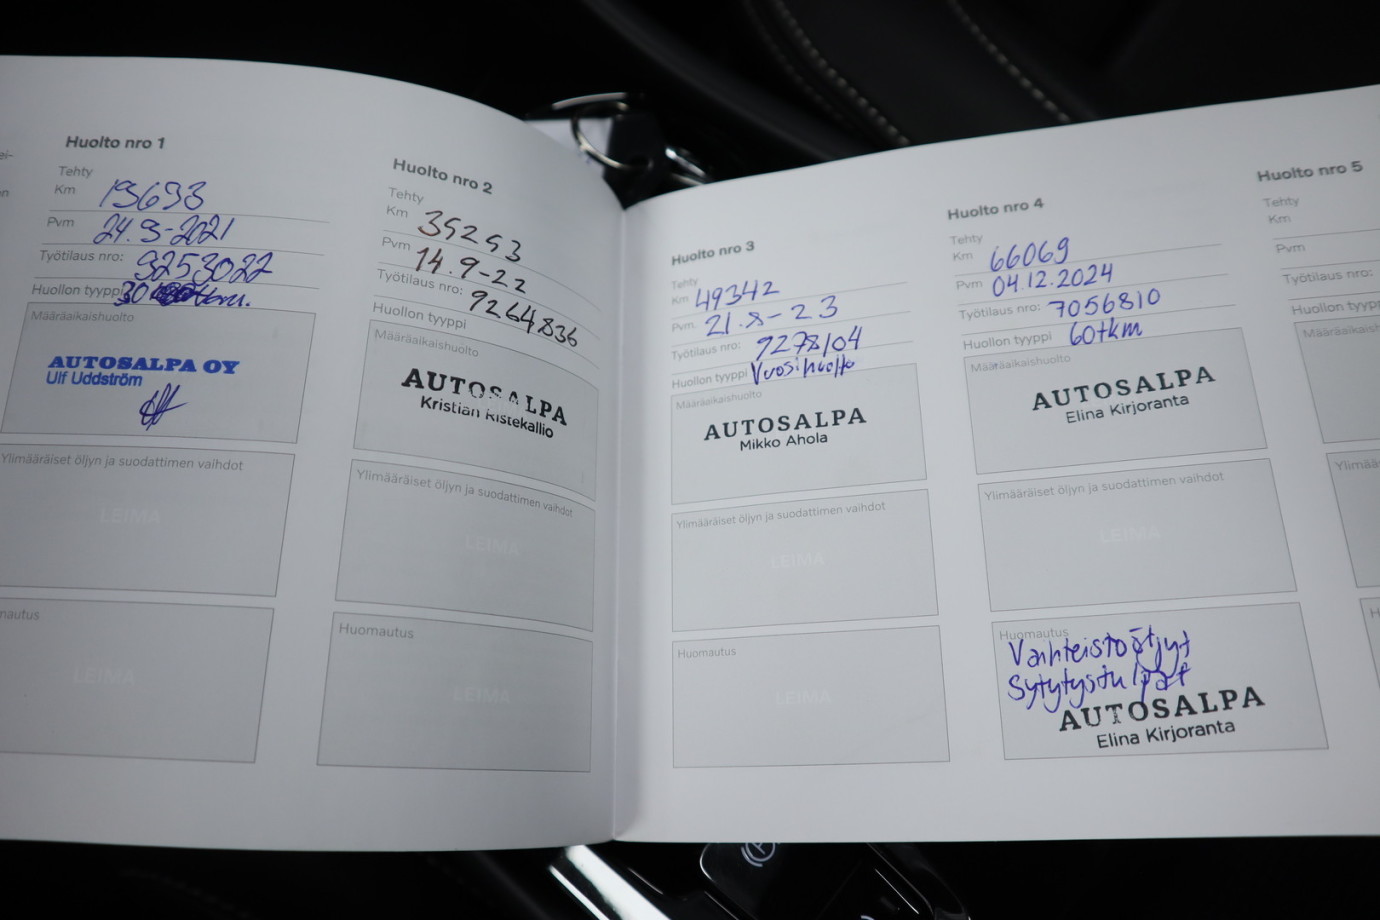 Huolto nro 1
Tehty
Km 19693
Pvm 24.9-2021
Työtilaus nro: 9253022
Huollon tyyppi 30 tkm.
Määräaikaishuolto
AUTOSALPA OY
Ulf Uddström
Ylimääräiset öljyn ja suodattimen vaihdot
LEIMA
nautus
LEIMA
Huolto nro 2
Tehty
Km 35253
Pvm 14.9-22
Työtilaus nro: 9264836
Huollon tyyppi
Määräaikaishuolto
AUTOSALPA
Kristian Ristekallio
Ylimääräiset öljyn ja suodattimen vaihdot
LEIMA
Huomautus
LEIMA
Huolto nro 3
Tehty
Km 49342
Pvm. 21.8-23
Työtilaus nro: 9278104
Huollon tyyppi Vuosihuolto
Määräaikaishuolto
AUTOSALPA
Mikko Ahola
Ylimääräiset öljyn ja suodattimen vaihdot
LEIMA
Huomautus
LEIMA
Huolto nro 4
Tehty
Km 66069
Pvm 04.12.2024
Työtilaus nro: 7056810
Huollon tyyppi 60tkm
Määräaikaishuolto
AUTOSALPA
Elina Kirjoranta
Ylimääräiset öljyn ja suodattimen vaihdot
LEIMA
Huomautus
Vaihteistoöljyt
Sytytystulpat
AUTOSALPA
Elina Kirjoranta
Huolto nro 5
Tehty
Km
Pvm
Työtilaus nro:
Huollon tyypp
Määräaikaish
Ylimää
H